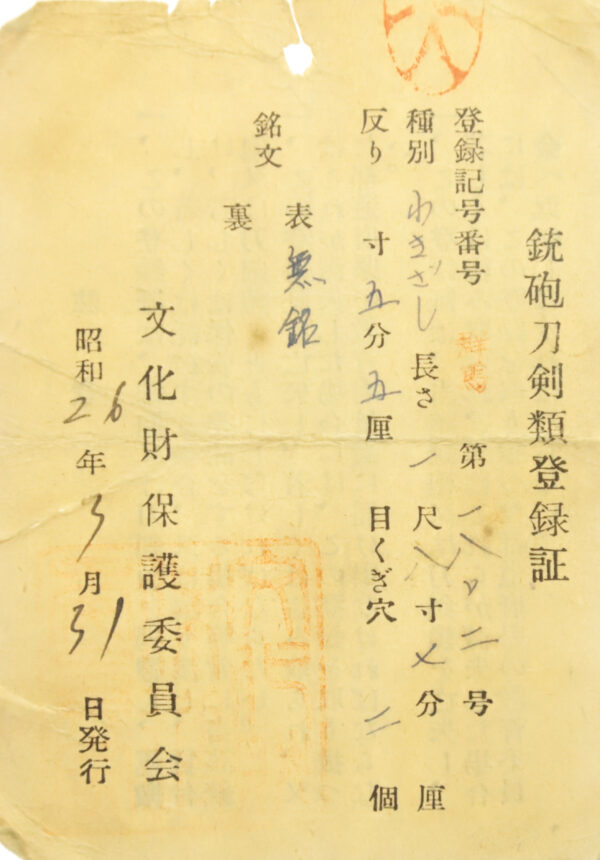 銃砲刀剣類登録証
登録記号番号 群馬 第一八〃二号
種別 わきざし 長さ 一尺八寸 分 厘
反り 寸五分五厘 目くぎ穴 二個
銘文 表 無銘
裏
文化財保護委員会
昭和26年3月31日発行